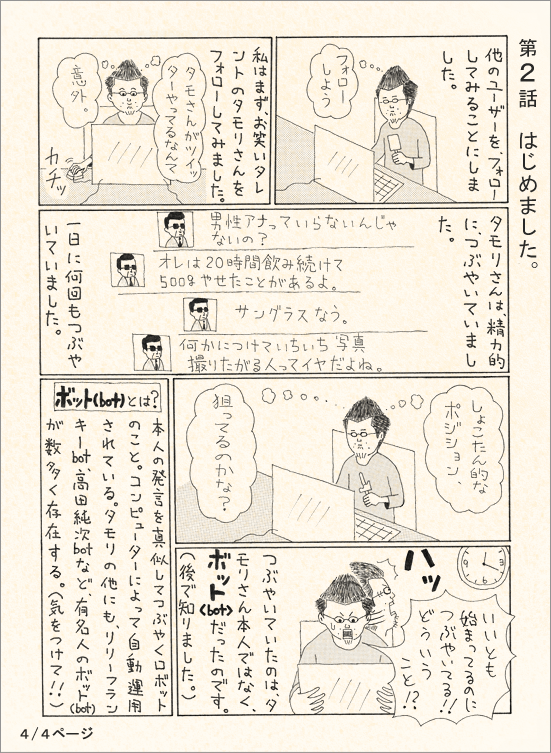 第2話　はじめました。
他のユーザーを、フォロー
してみることにしま
した。
フォロー
しよう
私はまず、お笑いタレ
ントのタモリさんを
フォローしてみました。
タモさんがツイッ
ターやってるなんて
意外。
カチッ
タモリさんは、精力的
に、つぶやいていまし
た。
男性アナっていらないんじゃ
ないの？
オレは20時間飲み続けて
500gやせたことがあるよ。
サングラスなう。
何かにつけていちいち写真
撮りたがる人ってイヤだよね。
一日に何回もつぶや
いていました。
しょこたん的な
ポジション、
狙ってるのかな？
ハッ
いいとも
始まってるのに
つぶやいてる!!
どういう
こと!?
つぶやいていたのは、タ
モリさん本人ではなく、
ボット(bot)だったのです。
(後で知りました。)
ボット(bot)とは?
本人の発言を真似してつぶやくロボット
のこと。コンピューターによって自動運用
されている。タモリの他にも、リリーフラン
キーbot、高田純次botなど、有名人のボット(bot)
が数多く存在する。(気をつけて!!)
4/4ページ